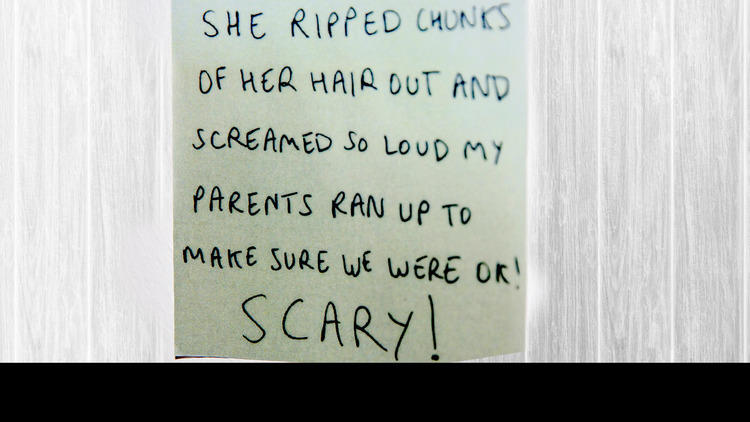 SHE RIPPED CHUNKS
OF HER HAIR OUT AND
SCREAMED SO LOUD MY
PARENTS RAN UP TO
MAKE SURE WE WERE OK!
SCARY!